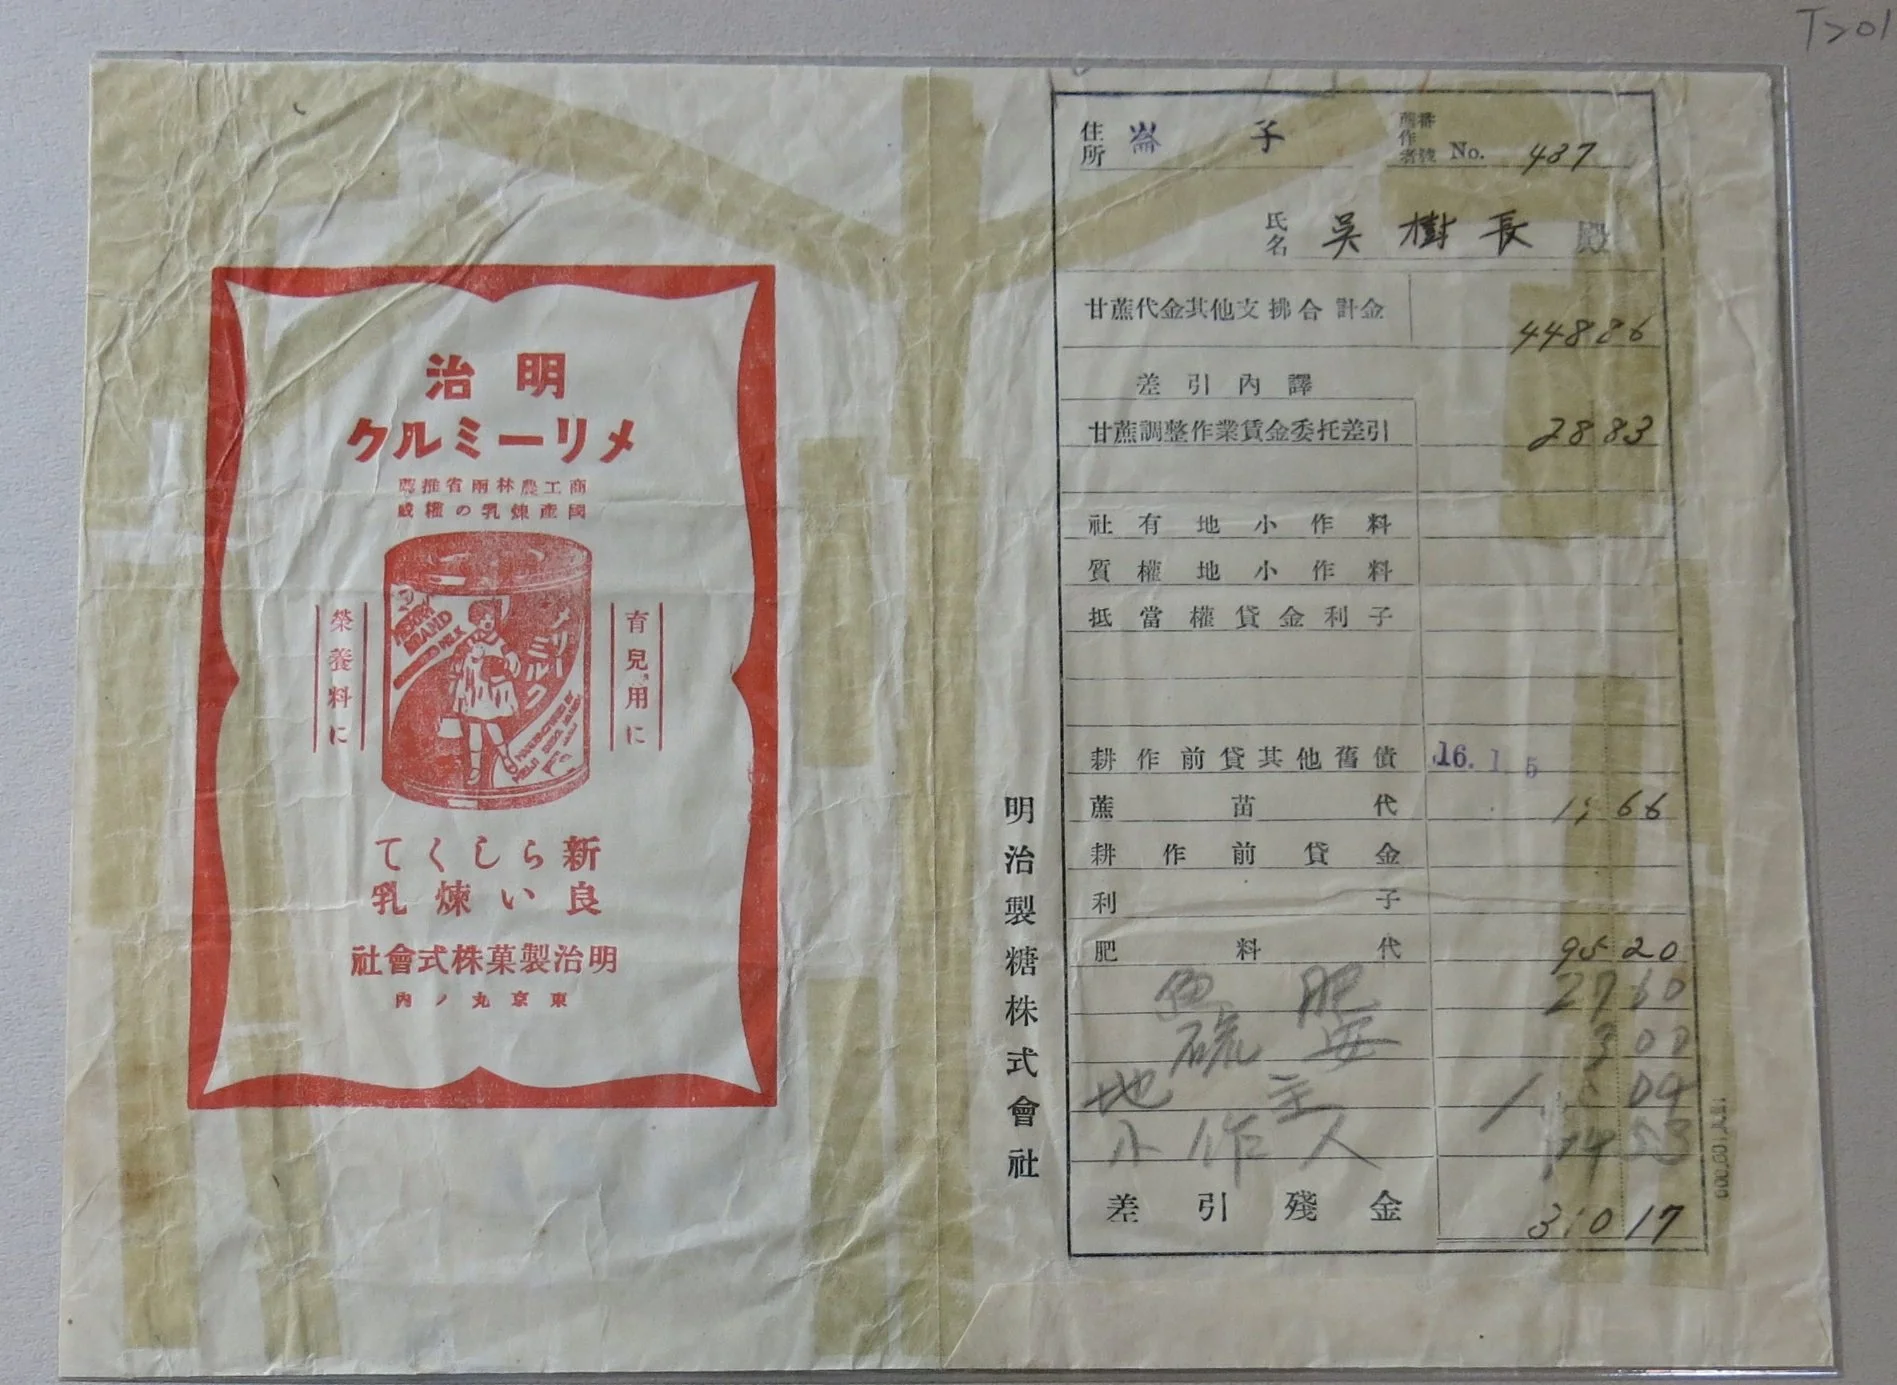 T>01
明治
メリーミルク
商工農林兩省推薦
國產煉乳の權威
育兒用に
榮養料に
MERRY
BRAND
MILK
メリーミルク
MEIJI
新らしくて
良い煉乳
明治製菓株式會社
東京丸ノ內
明治製糖株式會社
住所 崙子
蔗作者番號 No. 437
氏名 吳樹長 殿
甘蔗代金其他支拂合計金 44886
差引內譯
甘蔗調整作業賃金委托差引 2883
社有地小作料
質權地小作料
抵當權貸金利子
耕作前貸其他舊債 16.1.5
蔗苗代 1466
耕作前貸金
利子
肥料代 9520
肥 2760
硫安 300
地主
小作人
差引殘金 31017